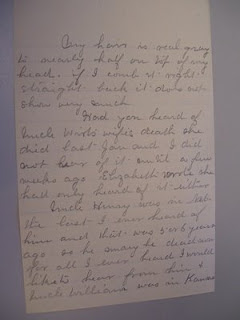 My hair is real gray
is nearly half on top of my
head. if I comb it right
straight back it does not
show very much.
Had you heard of
Uncle wife's death she
died last Jan and I did
not hear of it until a few
weeks ago Elizabeth wrote she
had only heard of it
Uncle Henry was in
the last I ever heard of
him and that was 5 or 6 years
ago so he may be dead
for all I ever heard I would
like to hear from him &
Uncle William was in Kansas